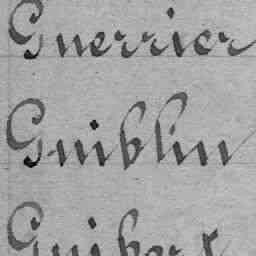 Guerrier
Guiblin